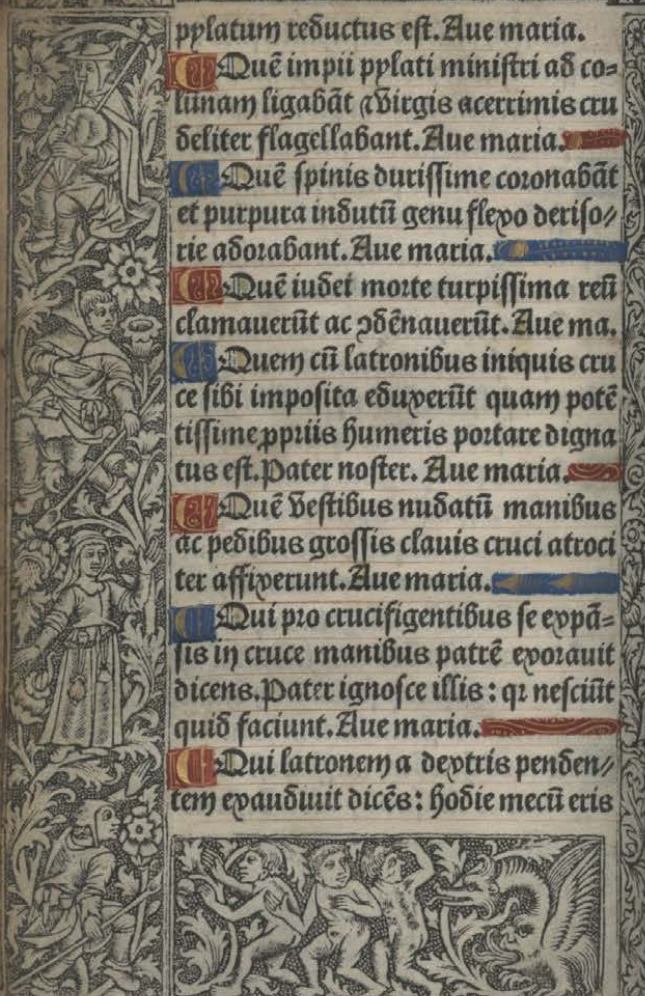 pylatum reductus est. Aue maria.
Quē impii pylati ministri ad co=
lunam ligabāt ⁊ virgis acerrimis cru
deliter flagellabant. Aue maria.
Quē spinis durissime coronabāt
et purpura indutū genu flexo deriso//
rie adorabant. Aue maria.
Quē iudei morte turpissima reū
clamauerūt ac ↄdēnauerūt. Aue ma.
Quem cū latronibus iniquis cru
ce sibi imposita eduxerūt quam potē
tissime ꝓpriis humeris portare digna
tus est. Pater noster. Aue maria.
Quē vestibus nudatū manibus
ac pedibus grossis clauis cruci atroci
ter affixerunt. Aue maria.
Qui pro crucifigentibus se expā=
sis in cruce manibus patrē exorauit
dicens. Pater ignosce illis: qꝛ nesciūt
quid faciunt. Aue maria.
Qui latronem a dextris penden//
tem exaudiuit dicēs: hodie mecū eris